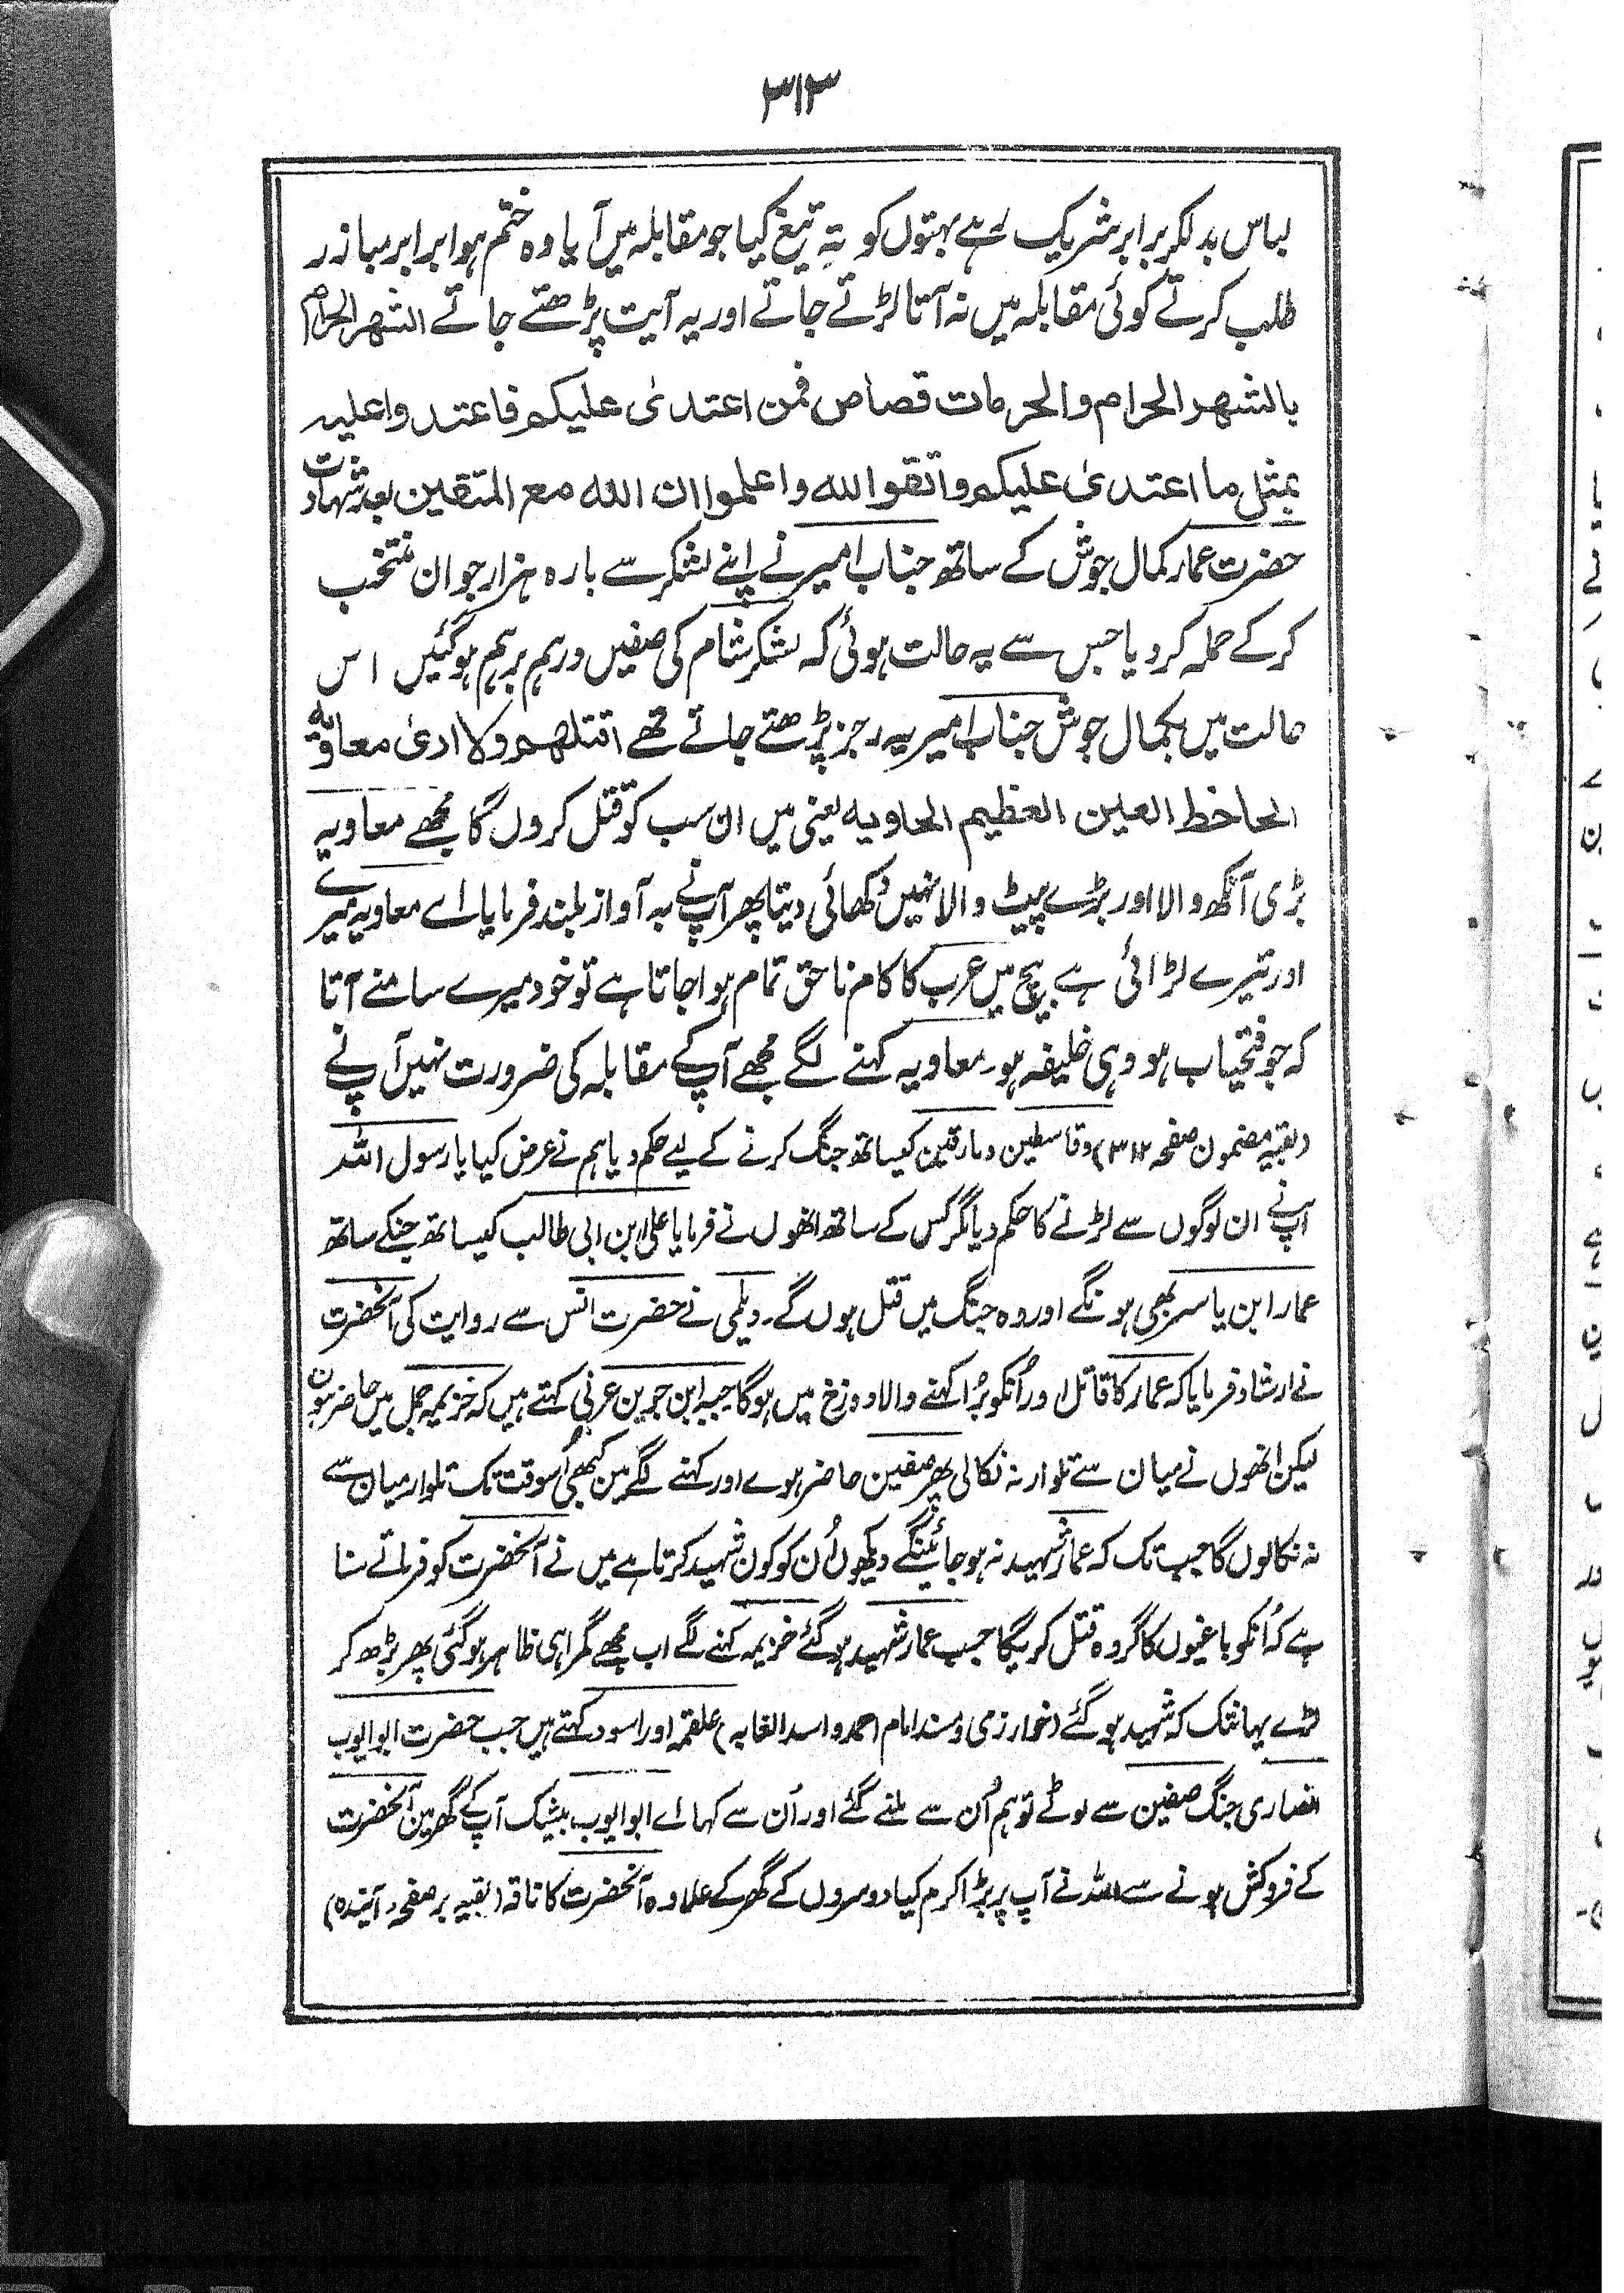 ۳۱۳
لباس بدلکر برابر شریک رہے بہتوں کو تہِ تیغ کیا جو مقابلہ میں آیا وہ ختم ہوا برابر مبازر
طلب کرتے کوئی مقابلہ میں نہ آتا لڑتے جاتے اور یہ آیت پڑھتے جاتے الشھر الحرام
بالشھر الحرام والحرمات قصاص فمن اعتدیٰ علیکم فاعتدوا علیہ
بمثل ما اعتدیٰ علیکم واتقوا اللہ واعلموا ان اللہ مع المتقین بعد شہادت
حضرت عمار کمال جوش کے ساتھ جناب امیر نے اپنے لشکر سے بارہ ہزار جوان منتخب
کر کے حملہ کر دیا جس سے یہ حالت ہوئی کہ لشکر شام کی صفیں درہم برہم ہو گئیں اس
حالت میں بکمال جوش جناب امیر یہ رجز پڑھتے جاتے تھے اقتلھم ولا اریٰ معاویہ
الجاخط العین العظیم الحاویہ یعنی میں ان سب کو قتل کروں گا مجھے معاویہ
بڑی آنکھ والا اور بڑے پیٹ والا نہیں دکھائی دیتا پھر آپ نے بہ آواز بلند فرمایا اے معاویہ میرے
اور تیرے لڑائی ہے بیچ میں عرب کا کام ناحق تمام ہوا جاتا ہے تو خود میرے سامنے آتا
کہ جو فتحیاب ہو وہی خلیفہ ہو۔ معاویہ کہنے لگے مجھے آپ کے مقابلہ کی ضرورت نہیں آپ نے
(بقیہ مضمون صفحہ ۳۱۲) وقاسطین ومارقین کیساتھ جنگ کرنے کے لیے حکم دیا ہم نے عرض کیا یا رسول اللہ
آپ نے ان لوگوں سے لڑنے کا حکم دیا مگر کس کے ساتھ انھوں نے فرمایا علی ابن ابی طالب کیساتھ جنکے ساتھ
عمار ابن یاسر بھی ہونگے اور وہ جنگ میں قتل ہوں گے۔ دیلمی نے حضرت انس سے روایت کی آنحضرت
نے ارشاد فرمایا کہ عمار کا قاتل اور اُنکو بُرا کہنے والا دوزخ میں ہوگا حبہ ابن جوین عرنی کہتے ہیں کہ خزیمہ جمل میں حاضر ہوئے
لیکن انھوں نے میان سے تلوار نہ نکالی پھر صفین حاضر ہوے اور کہنے لگے میں کبھی اُسوقت تک تلوار میان سے
نہ نکالوں گا جب تک کہ عمار شہید نہ ہو جائینگے دیکھوں اُن کو کون شہید کرتا ہے میں نے آنحضرت کو فرماتے سنا
ہے کہ اُنکو باغیوں کا گروہ قتل کریگا جب عمار شہید ہو گئے خزیمہ کہنے لگے اب مجھے گمراہی ظاہر ہو گئی پھر بڑھ کر
لڑے یہانتک کہ شہید ہو گئے (خوارزمی و مسند امام احمد و اسد الغابہ) علقمہ اور اسود کہتے ہیں جب حضرت ابو ایوب
انصاری جنگ صفین سے لوٹے تو ہم اُن سے ملنے گئے اور اُن سے کہا اے ابو ایوب بیشک آپ کے گھر میں آنحضرت
کے فروکش ہونے سے اللہ نے آپ پر بڑا کرم کیا دوسروں کے گھر کے علاوہ آنحضرت کا ناقہ (بقیہ بر صفحہ آیندہ)